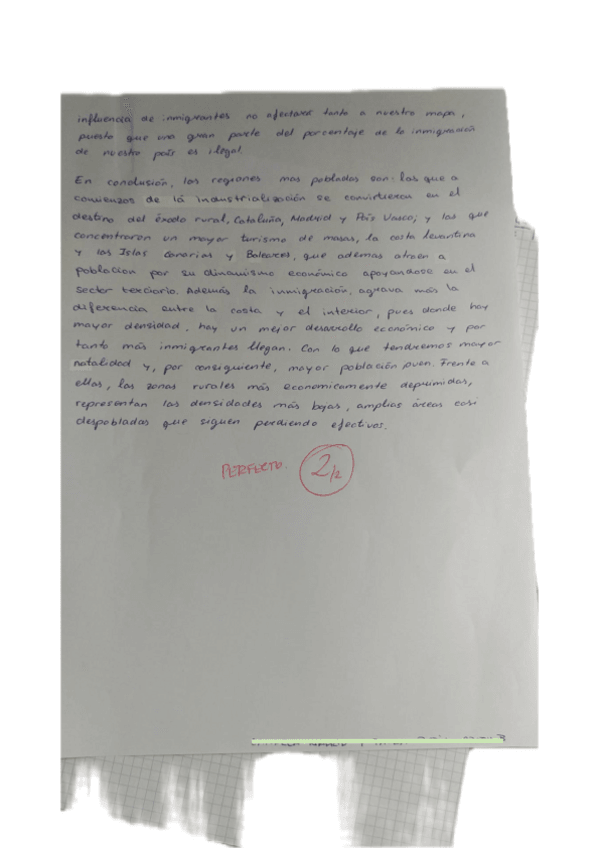 influencia de inmigrantes no afectaras tanto a nuestro mapa,
puesto que una gran parte del porcentaje de la inmigración
de nuestro país es ilegal.
En conclusión, las regiones mas pobladas son: las que a
comienzos de la industrialización se convirtieron en el
destino del éxodo rural, Cataluña, Madrid y País Vasco; y las que
concentraron un mayor turismo de masas, la costa levantina
y las Islas Canarias y Baleares, que ademas atraen a
poblacion por su dinamismo económico apoyandose en el
sector terciario. Además la inmigración, agrava más la
diferencia entre la costa y el interior, pues donde hay
mayor densidad, hay un mejor desarrollo económico y por
tanto más inmigrantes llegan. Con lo que tendremos mayor
natalidad y, por consiguiente, mayor población joven. Frente a
ellas, las zonas rurales más economicamente deprimidas,
representan las densidades más bajas, amplias áreas casi
despobladas que siguen perdiendo efectivos.
PERFECTO. 2/2